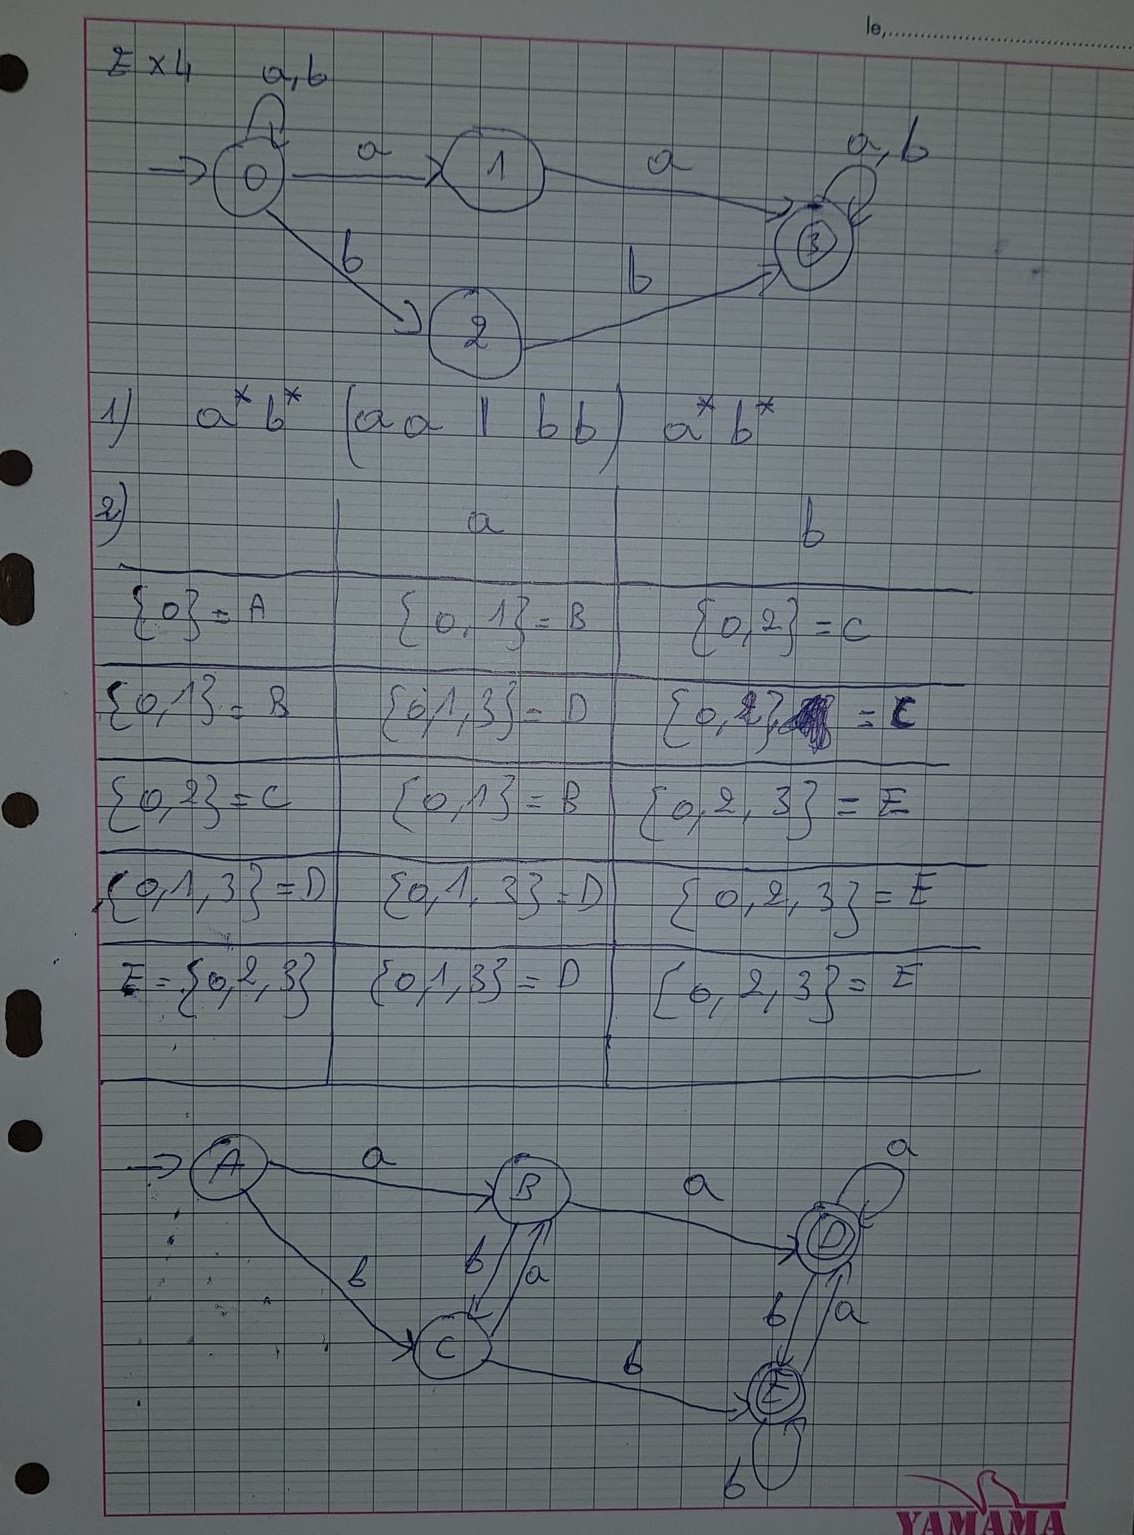 le,
Ex4
a,b
a
a
a,b
0
1
3
b
b
2
1) a* b* (aa | bb) a* b*
2) a b
{0} = A {0,1} = B {0,2} = C
{0,1} = B {0,1,3} = D {0,2} = C
{0,2} = C {0,1} = B {0,2,3} = E
{0,1,3} = D {0,1,3} = D {0,2,3} = E
E = {0,2,3} {0,1,3} = D {0,2,3} = E
a
A
a
B
a
D
b
b
a
b
a
C
b
E
b
YAMAMA